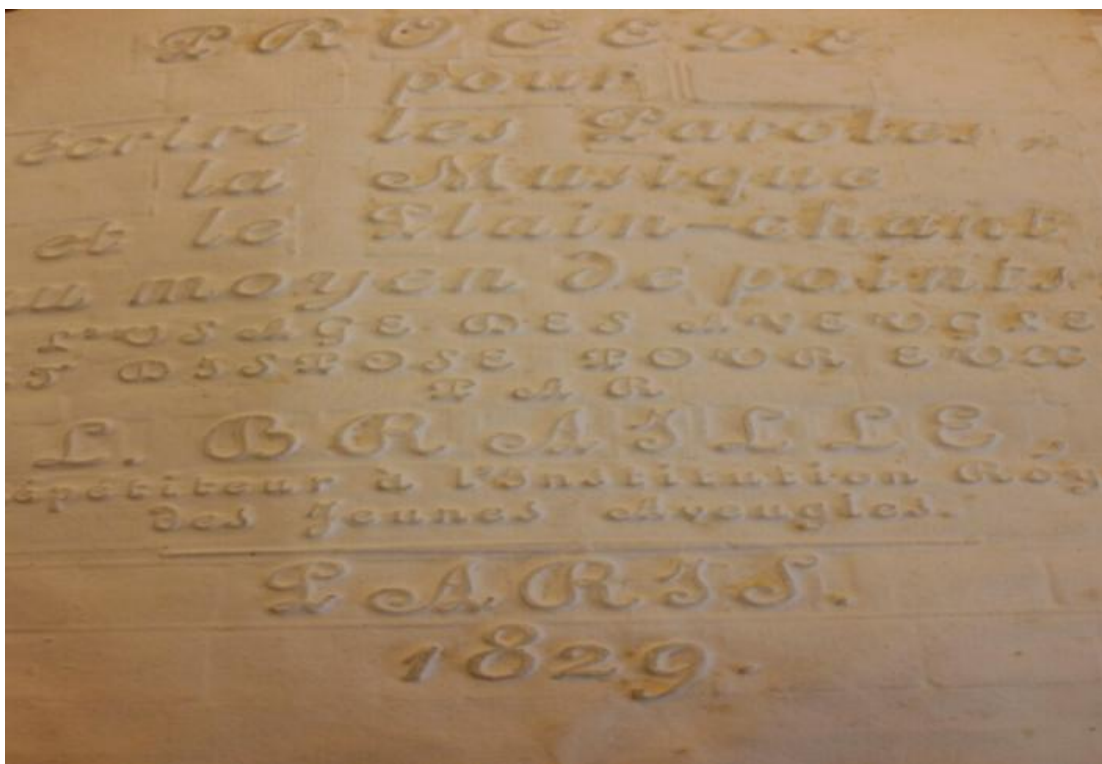 PROCEDE
pour
écrire les Paroles,
la Musique
et le Plain-chant
au moyen de points
L'USAGE DES AVEUGLE
ET DISPOSE POUR EUX
PAR
L. BRAILLE,
épétiteur à l'Institution Roy
des Jeunes Aveugles.
PARIS.
1829.